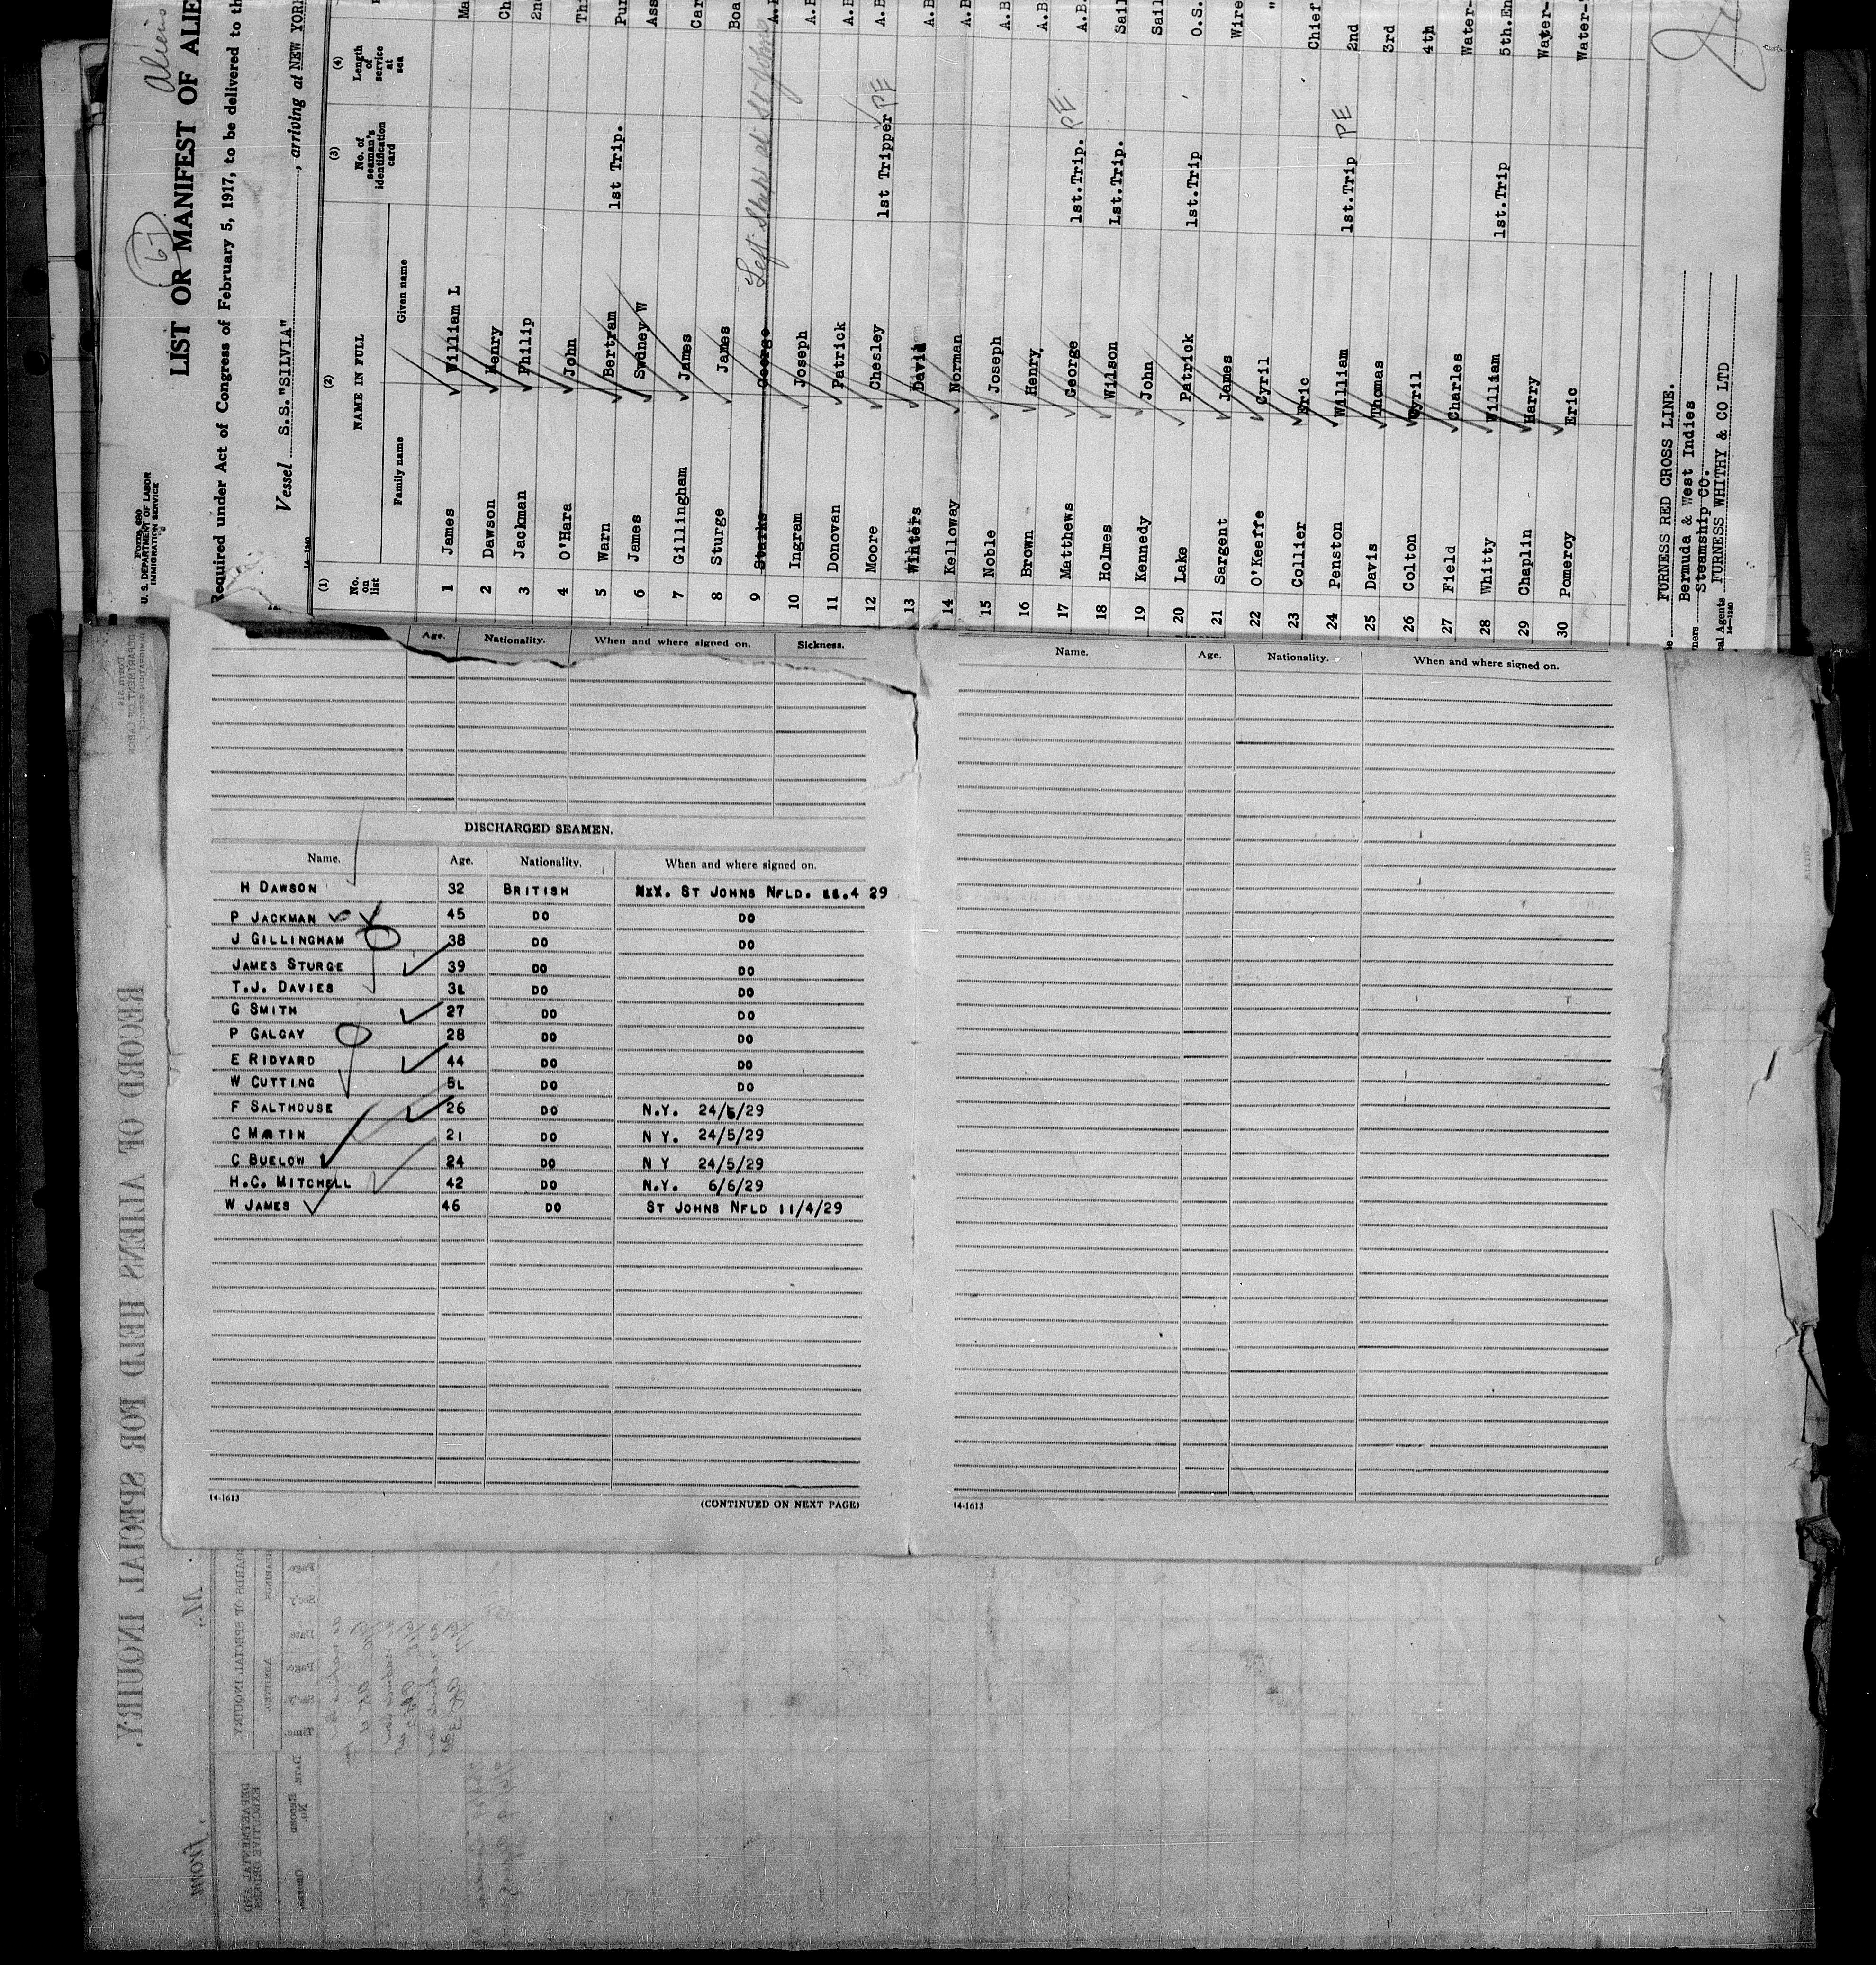 Form 680
U. S. DEPARTMENT OF LABOR
IMMIGRATION SERVICE
Aliens
LIST OR MANIFEST OF ALIE
Required under Act of Congress of February 5, 1917, to be delivered to th
Vessel S.S."SILVIA", arriving at NEW YORK
(1) (2) (3) (4)
No. on list NAME IN FULL No. of seaman's identification card Length of service at sea
Family name Given name
1 James William L Ma
2 Dawson Henry Ch
3 Jackman Philip 2nd
4 O'Hara John Thi
5 Warn Bertram 1st Trip. Pur
6 James Sydney W Ass
7 Gillingham James Car
8 Sturge James Boa
9 Starks George Left Ship at St Johns
10 Ingram Joseph A.B
11 Donovan Patrick A.B
12 Moore Chesley 1st Tripper PE A.B
13 Winters David A.B
14 Kelloway Norman A.B
15 Noble Joseph A.B
16 Brown Henry A.B
17 Matthews George 1st.Trip. PE A.B.
18 Holmes Wilson Lst.Trip. Sail
19 Kennedy John Sail
20 Lake Patrick 1st.Trip O.S.
21 Sargent James Wire
22 O'Keeffe Cyril "
23 Collier Eric Chief
24 Penston William 1st.Trip PE 2nd
25 Davis Thomas 3rd
26 Colton Cyril 4th
27 Field Charles Water-
28 Whitty William 1st.Trip 5th.En
29 Chaplin Harry Water-
30 Pomeroy Eric Water-
FURNESS RED CROSS LINE.
Bermuda & West Indies
Steamship CO.
FURNESS WHITHY & CO LTD
cal Agents
14-1240
Age. Nationality. When and where signed on. Sickness.
DISCHARGED SEAMEN.
Name. Age. Nationality. When and where signed on.
H DAWSON 32 BRITISH ST JOHNS NFLD. 11.4 29
P JACKMAN 45 DO DO
J GILLINGHAM 38 DO DO
JAMES STURGE 39 DO DO
T.J. DAVIES 3L DO DO
G SMITH 27 DO DO
P GALGAY 28 DO DO
E RIDYARD 44 DO DO
W CUTTING 5L DO DO
F SALTHOUSE 26 DO N.Y. 24/5/29
C MATIN 21 DO N Y. 24/5/29
C BUELOW 24 DO N Y 24/5/29
H.C. MITCHELL 42 DO N.Y. 6/6/29
W JAMES 46 DO ST JOHNS NFLD 11/4/29
14-1613 (CONTINUED ON NEXT PAGE)
Name. Age. Nationality. When and where signed on.
14-1613
RECORD OF ALIENS HELD FOR SPECIAL INQUIRY.